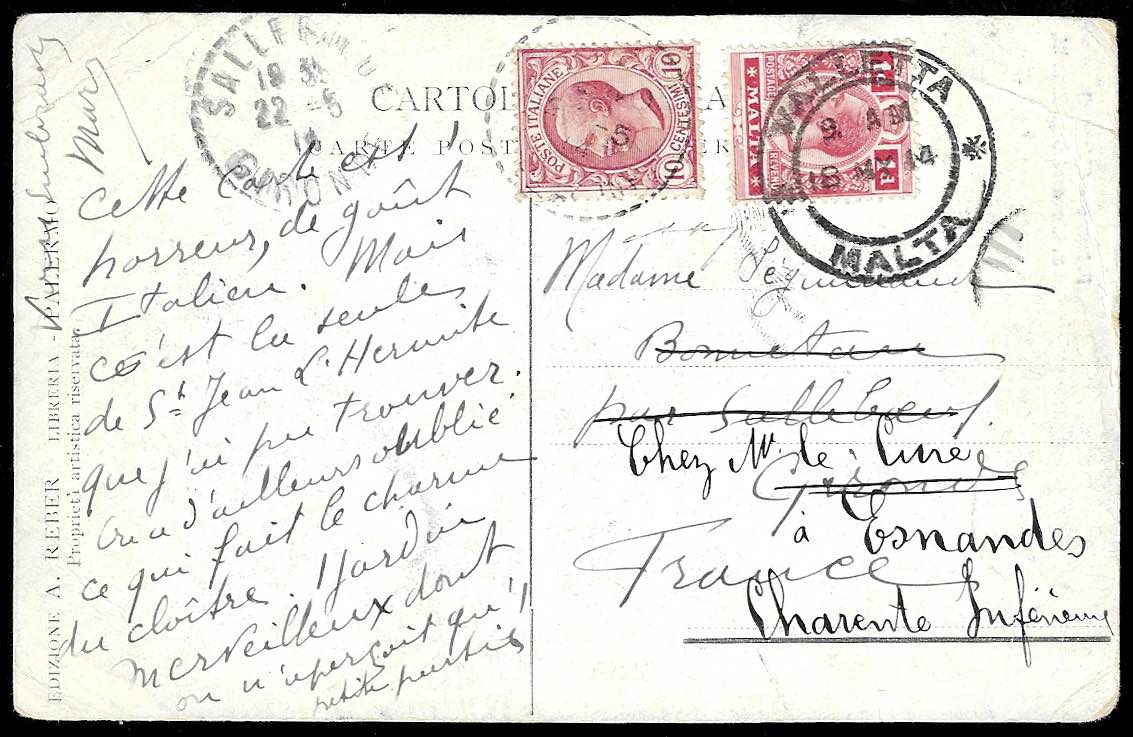 SALLEBOEUF
19 35
22 -5
14
GIRONDE
CARTOLINA
CARTE POSTALE
POSTE ITALIANE
10 CENTESIMI 10
POSTAGE
MALTA
REVENUE
1d
1d
VALLETTA
8 AM
18 MY 14
MALTA
Cette carte est l'
horreur, de goût
Italien. Mais
c'est la seule
de St Jean L'Hermite
que j'ai pu trouver.
On a d'ailleurs oublié
ce qui fait le charme
du cloître. 1 Jardin
merveilleux dont
on n'aperçoit qu'1
petite partie
Mary
Madame
Bonnetan
par Sallebœuf.
Gironde
France
Chez Mr le Curé
à Esnandes
Charente Inférieure
EDIZIONE A. REBER LIBRERIA - PALERMO
Proprietà artistica riservata.